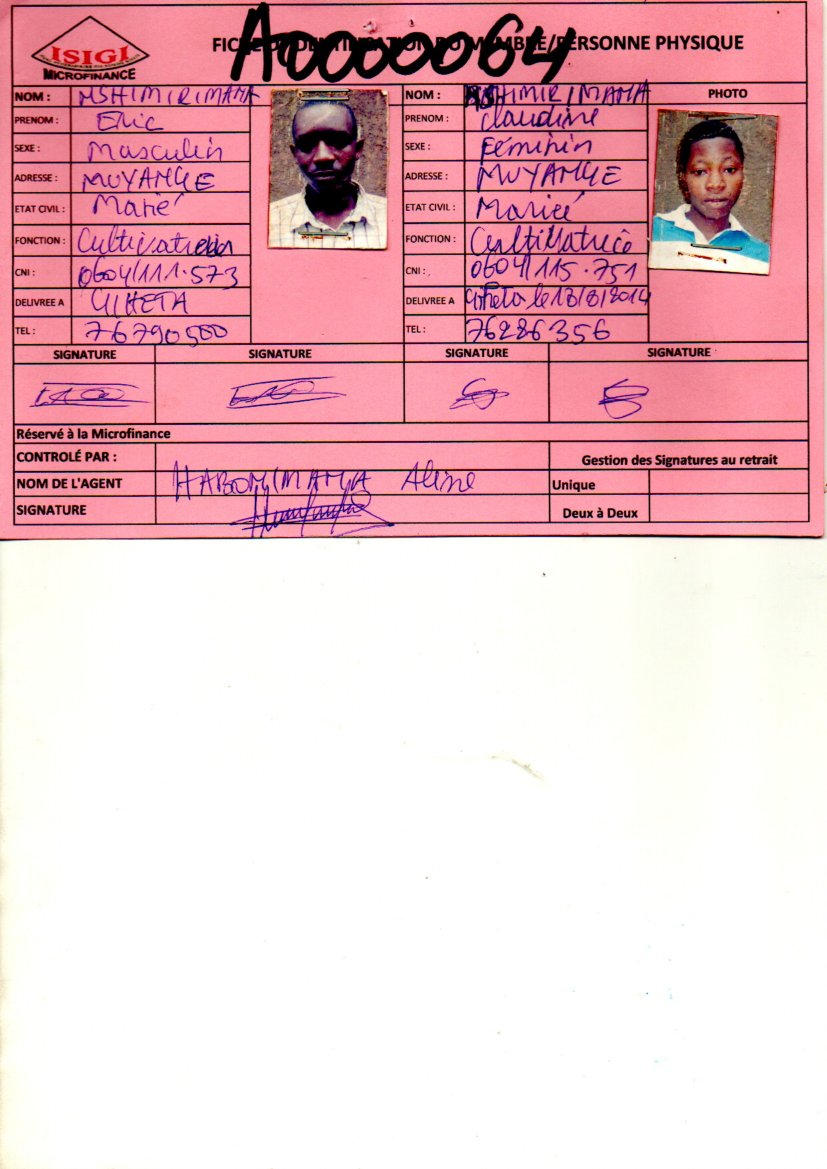 A0000064
ISIGI
MICROFINANCE
FICHE D'IDENTIFICATION DU MEMBRE/PERSONNE PHYSIQUE
NOM : NSHIMIRIMANA
PRENOM : Eric
SEXE : Masculin
ADRESSE : MUYANGE
ETAT CIVIL : Marié
FONCTION :
CNI : 0604/111.573
DELIVREE A GIHETA
TEL : 76790500
NOM : NSHIMIRIMANA
PRENOM : Claudine
SEXE : Féminin
ADRESSE : MUYANGE
ETAT CIVIL : Mariée
FONCTION : Cultivatrice
CNI : 0604/115.751
DELIVREE A Giheta le 18/8/2014
TEL : 76286356
PHOTO
SIGNATURE SIGNATURE SIGNATURE SIGNATURE
Réservé à la Microfinance
CONTROLÉ PAR :
NOM DE L'AGENT HABONIMANA Aline
SIGNATURE
Gestion des Signatures au retrait
Unique
Deux à Deux